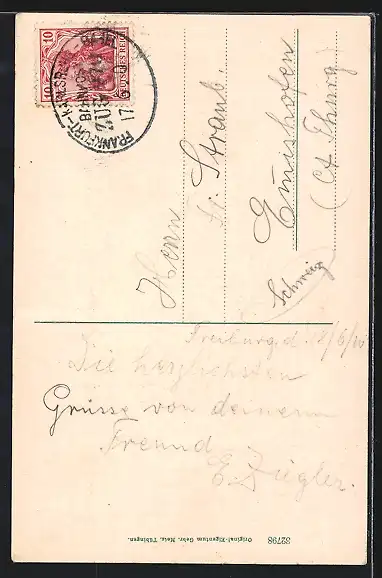 10
DEUTSCHES REICH
FRANKFURT-
BAHNPOST
ZUG
17
Herrn
Straub.
Emishofen
(Ct Thurg)
Schweiz
Freiburg, d. 18/6/
Die herzlichsten
Grüsse von deinem
Freund
E Ziegler.
32798 Original-Eigentum Gebr. Metz, Tübingen.